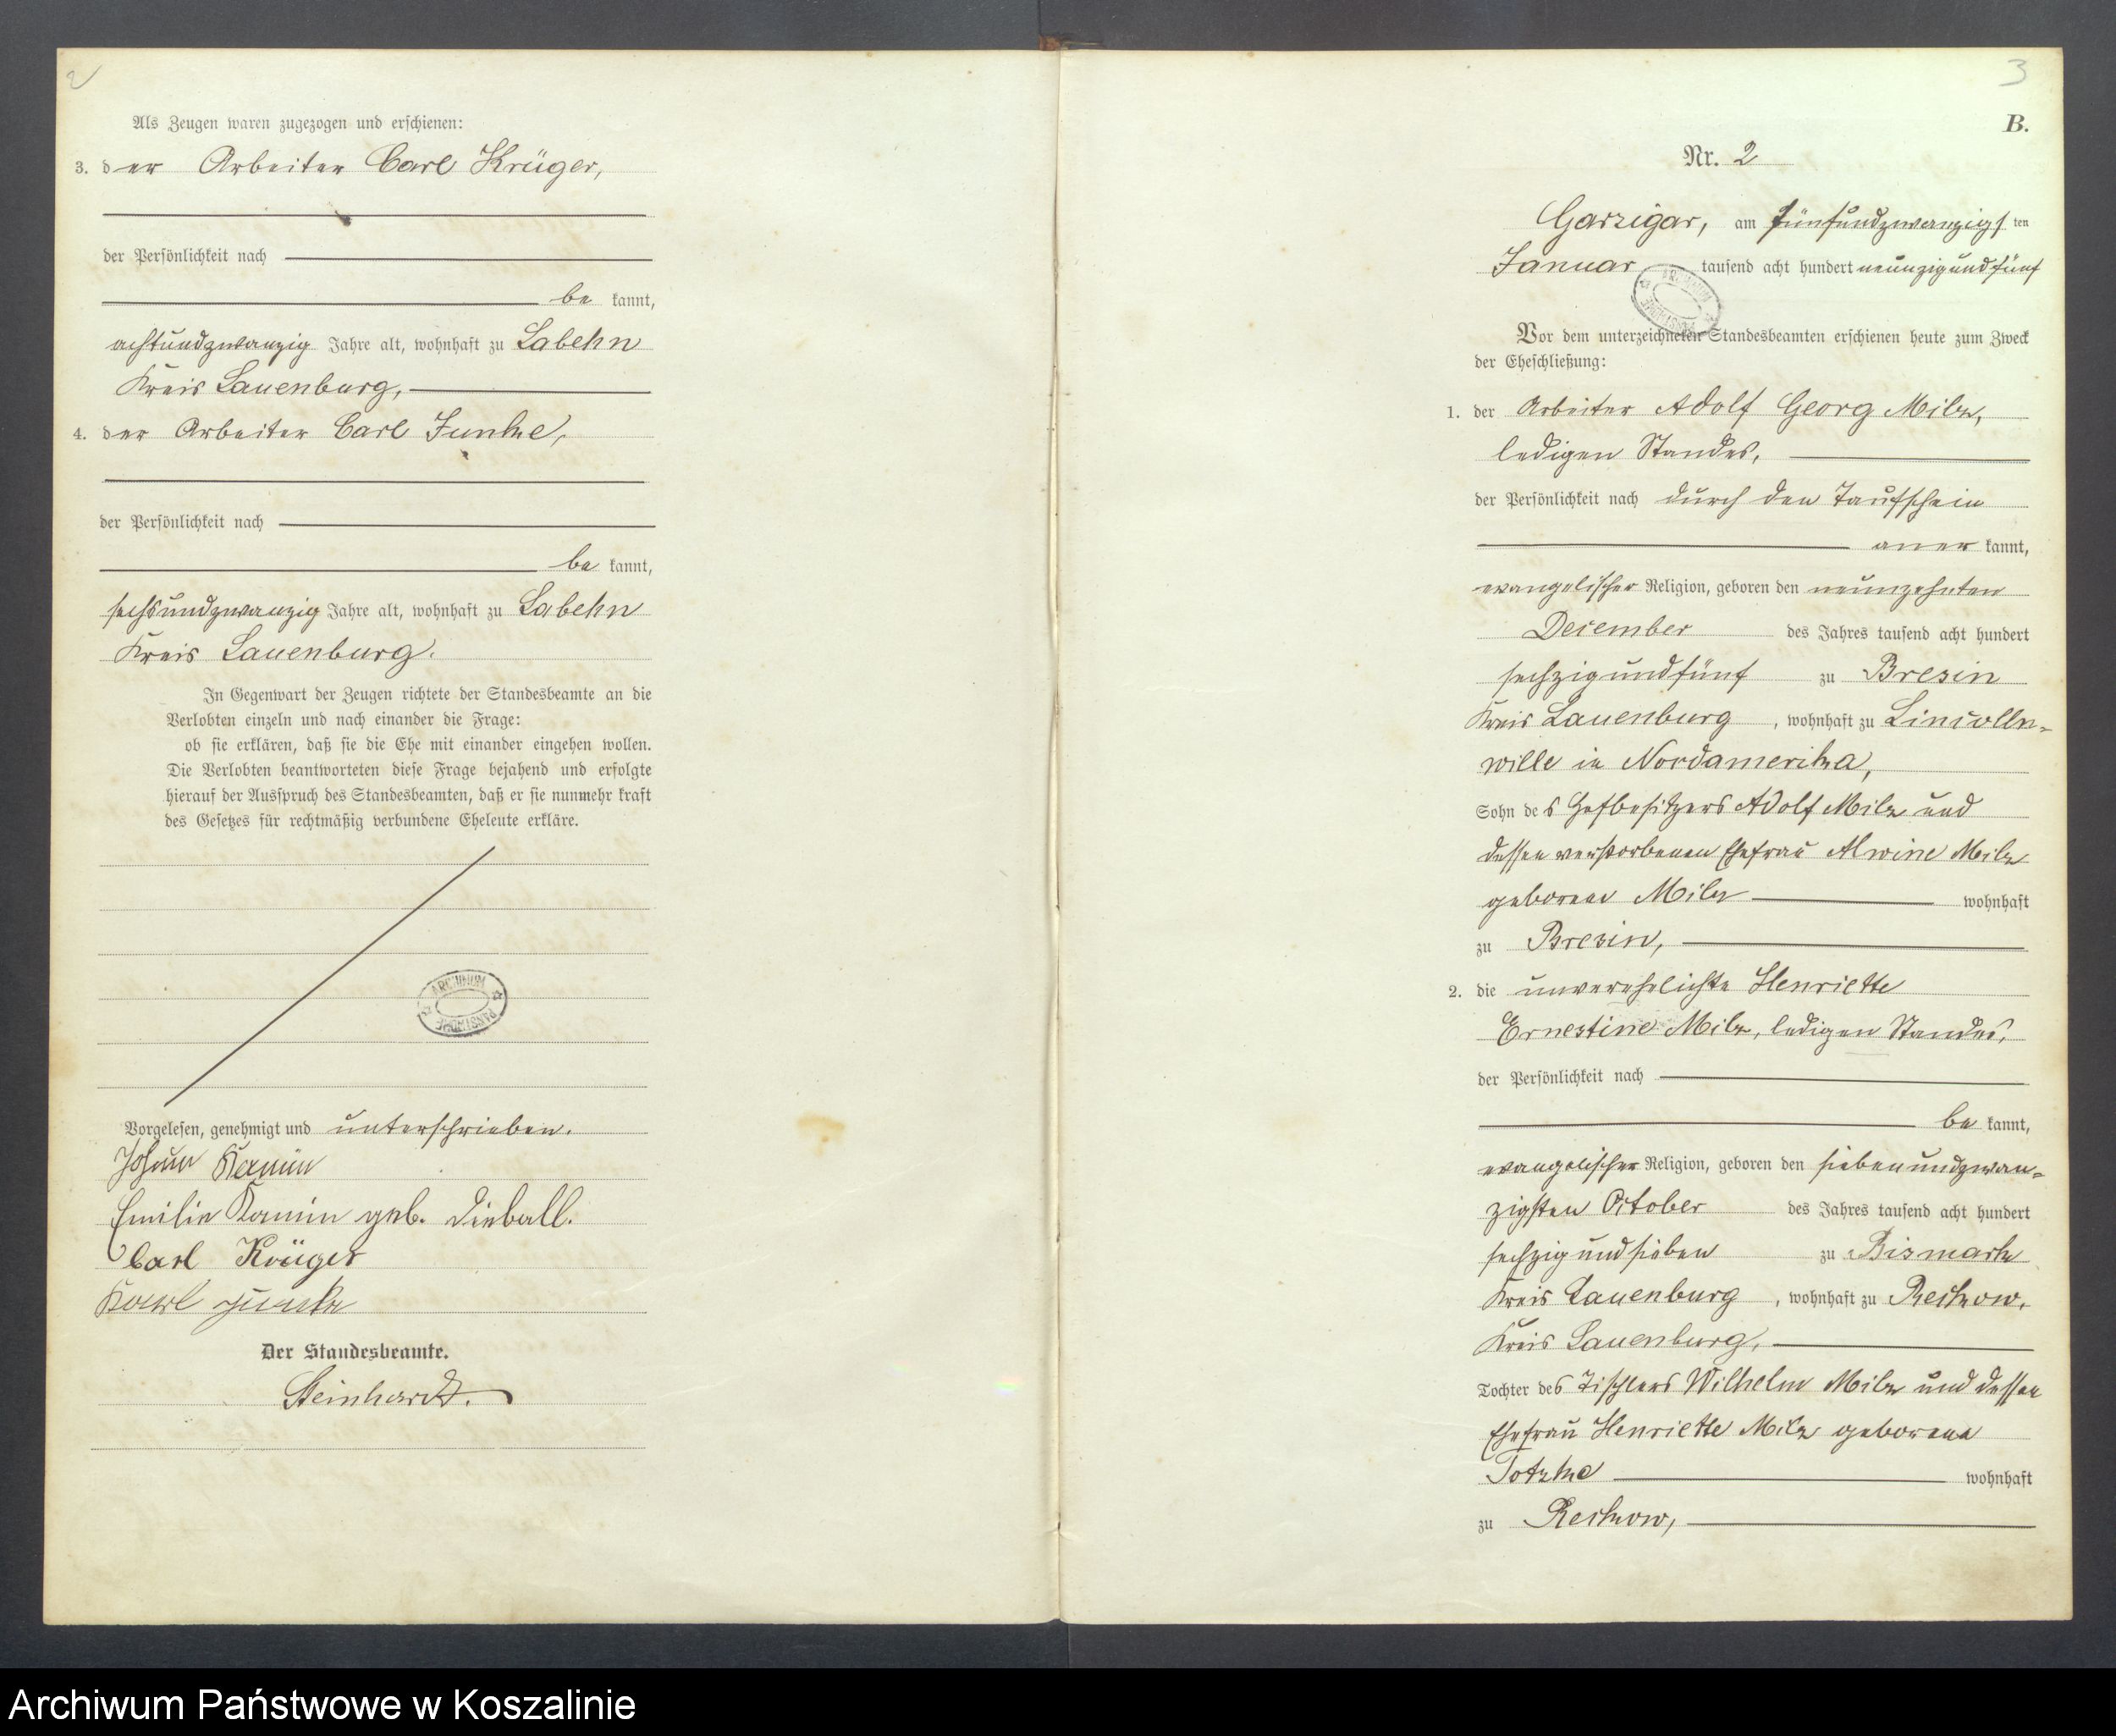 2
Als Zeugen waren zugezogen und erschienen:
3. der Arbeiter Carl Krüger,
der Persönlichkeit nach
be kannt,
achtundzwanzig Jahre alt, wohnhaft zu Labehn
Kreis Lauenburg,
4. der Arbeiter Carl Junke,
der Persönlichkeit nach
be kannt,
sechsundzwanzig Jahre alt, wohnhaft zu Labehn
Kreis Lauenburg.
In Gegenwart der Zeugen richtete der Standesbeamte an die
Verlobten einzeln und nach einander die Frage:
ob sie erklären, daß sie die Ehe mit einander eingehen wollen.
Die Verlobten beantworteten diese Frage bejahend und erfolgte
hierauf der Ausspruch des Standesbeamten, daß er sie nunmehr kraft
des Gesetzes für rechtmäßig verbundene Eheleute erkläre.
ARCHIWUM PAŃSTWOWE
Vorgelesen, genehmigt und unterschrieben.
Johann Kamin
Emilie Kamin geb. Dieball.
Carl Krüger
Karl Junke
Der Standesbeamte.
Steinhardt.
3
B.
Nr. 2
Garzigar, am fünfundzwanzigsten
Januar tausend acht hundert neunzig und fünf
ARCHIWUM PAŃSTWOWE
Vor dem unterzeichneten Standesbeamten erschienen heute zum Zweck
der Eheschließung:
1. der Arbeiter Adolf Georg Milz,
ledigen Standes,
der Persönlichkeit nach durch den Taufschein
aner kannt,
evangelischer Religion, geboren den neunzehnten
December des Jahres tausend acht hundert
sechzig und fünf zu Bresin
Kreis Lauenburg, wohnhaft zu Lincolln-
wille in Nordamerika,
Sohn des Hofbesitzers Adolf Milz und
dessen verstorbenen Ehefrau Alwine Milz
geborene Milz wohnhaft
zu Bresin,
2. die unverehelichte Henriette
Ernestine Milz, ledigen Standes,
der Persönlichkeit nach
be kannt,
evangelischer Religion, geboren den siebenundzwan-
zigsten October des Jahres tausend acht hundert
sechzig und sieben zu Bismark
Kreis Lauenburg, wohnhaft zu Reckow,
Kreis Lauenburg,
Tochter des Tischlers Wilhelm Milz und dessen
Ehefrau Henriette Milz geborene
Totzke wohnhaft
zu Reckow,
Archiwum Państwowe w Koszalinie